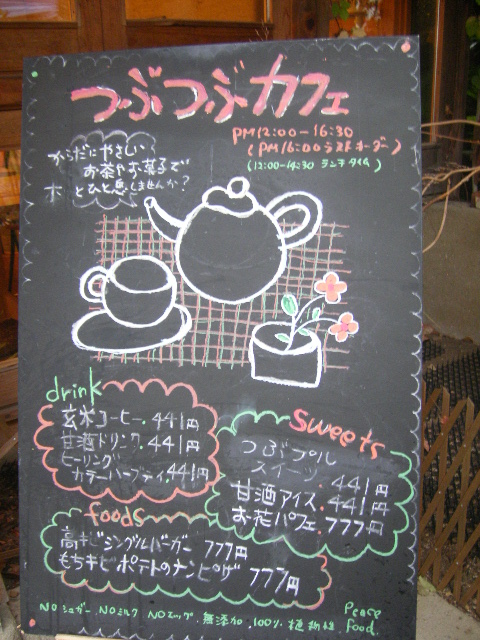 つぶつぶカフェ
PM12:00-16:30
(PM16:00ラストオーダー)
(12:00-14:30 ランチタイム)
からだにやさしい
お茶やお菓子で
ホッとひと息しませんか?
drink
玄米コーヒー.441円
甘酒ドリンク.441円
ヒーリング
カラーハーブティ.441円
sweets
つぶプル
スイーツ.441円
甘酒アイス.441円
お花パフェ.777円
foods
高キビシングルバーガー 777円
もちキビポテトのナンピザ 777円
NOシュガー.NOミルク NOエッグ.無添加.100%植物性
Peace
food